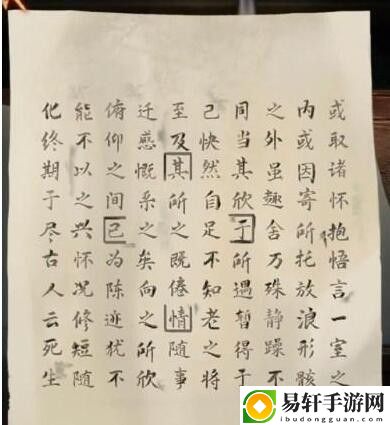 或取诸怀抱悟言一室之
内或因寄所托放浪形骸
之外虽趣舍万殊静躁不
同当其欣于所遇暂得于
己快然自足不知老之将
至及其所之既倦情随事
迁感慨系之矣向之所欣
俯仰之间已为陈迹犹不
能不以之兴怀况修短随
化终期于尽古人云死生
易轩手游网
ibudongguan.com